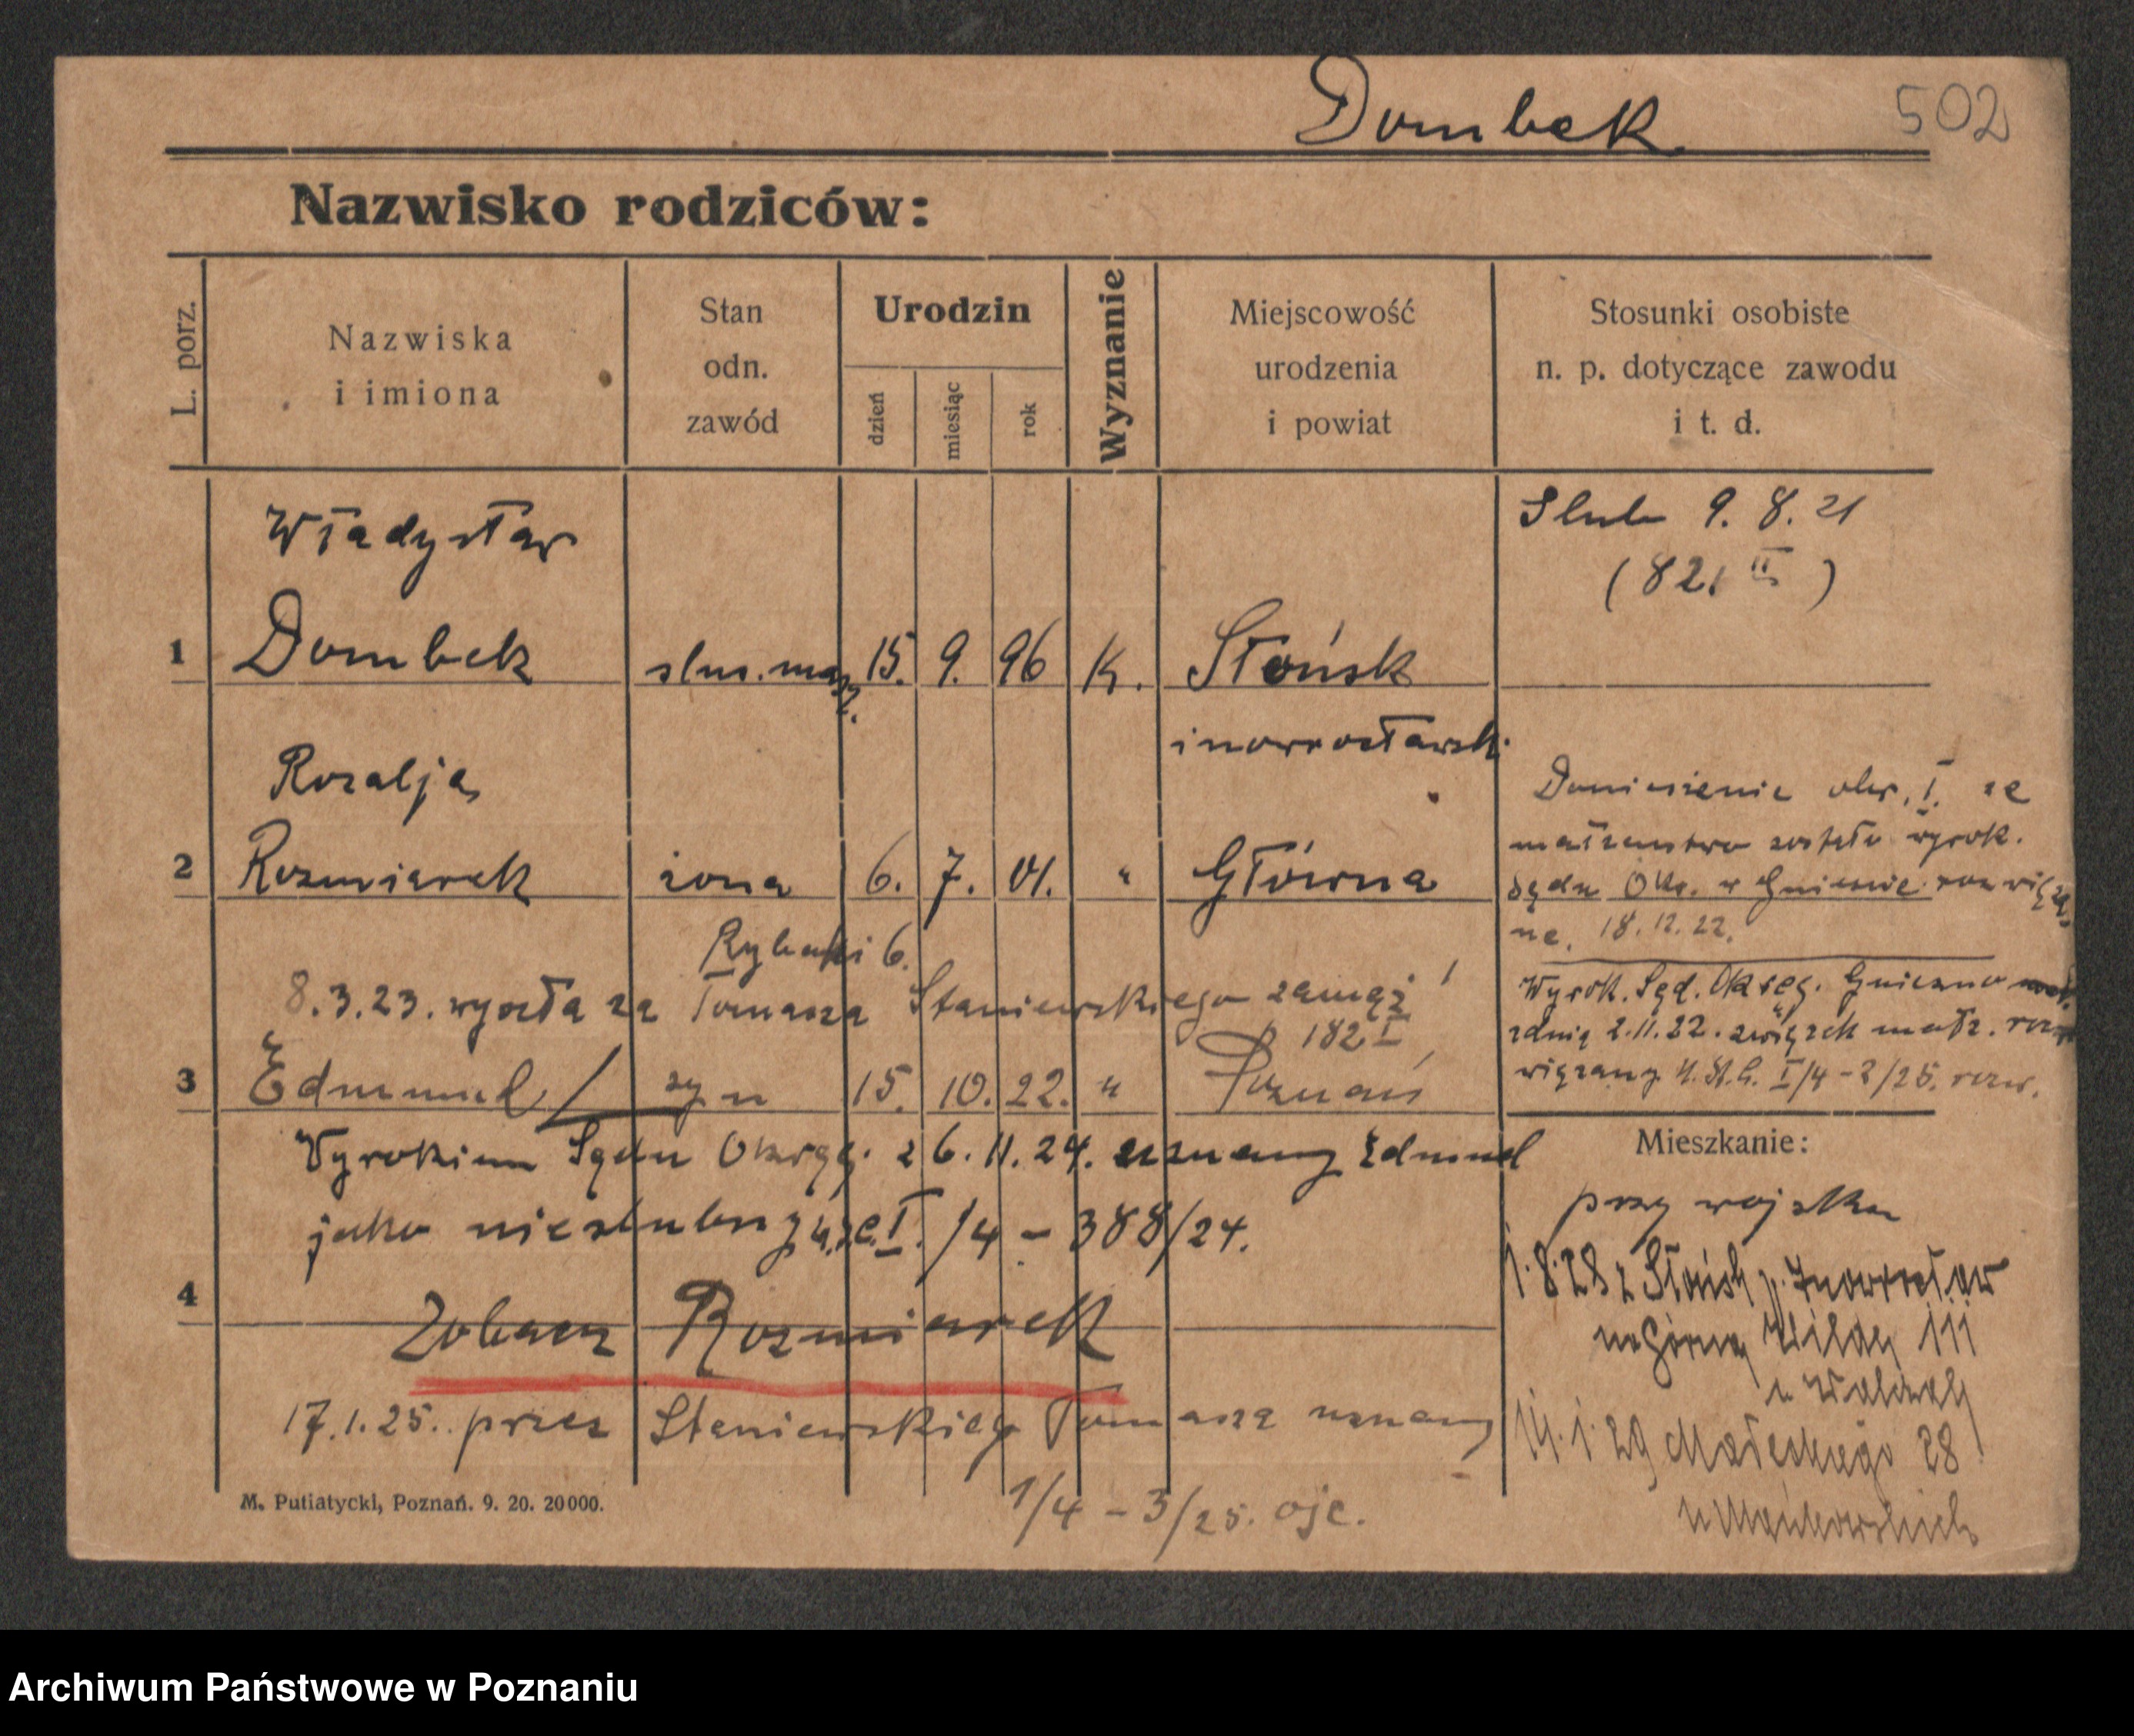 Dombek
502
Nazwisko rodziców:
L. porz.
Nazwiska
i imiona
Stan
odn.
zawód
Urodzin
dzień
miesiąc
rok
Wyznanie
Miejscowość
urodzenia
i powiat
Stosunki osobiste
n. p. dotyczące zawodu
i t. d.
Władysław
1 Dombek slus. masz. 15. 9. 96 K. Słońsk
inowrocławski
Slub 9. 8. 21
(82. II)
Rozalja
2 Rozmiarek żona 6. 7. 01. " Główna
Doniesienie okr. I. że
małżenstwo zostało wyrok.
Sądu Okr. w Gnieznie rozwiąza-
ne. 18. 12. 22.
Rybaki 6.
8. 3. 23. wyszła za Tomasza Staniewskiego zamąż
182 I
Wyrok. Sąd. Okręg. Gniezno
zdnią 2. 11. 22. związek małż. roz
wiązany U. St. C. I/4 - 2/25. rozw.
3 Edmund syn 15. 10. 22. " Poznań
Wyrokiem Sądu Okręg. z 6. 11. 24. uznany Edmund
jako nieslubny I./4 - 388/24.
4
Zobacz Rozmiarek
17. 1. 25. przez Staniewskiego Tomasza uznany
1/4 - 3/25. ojc.
Mieszkanie:
przy wojsku
1. 8. 28 z Słońsk p. Inowrocław
na Górną Wildę 111
14. 1. 29 Małeckiego 28
u Mańkowskich
M. Putiatycki, Poznań. 9. 20. 20000.
Archiwum Państwowe w Poznaniu